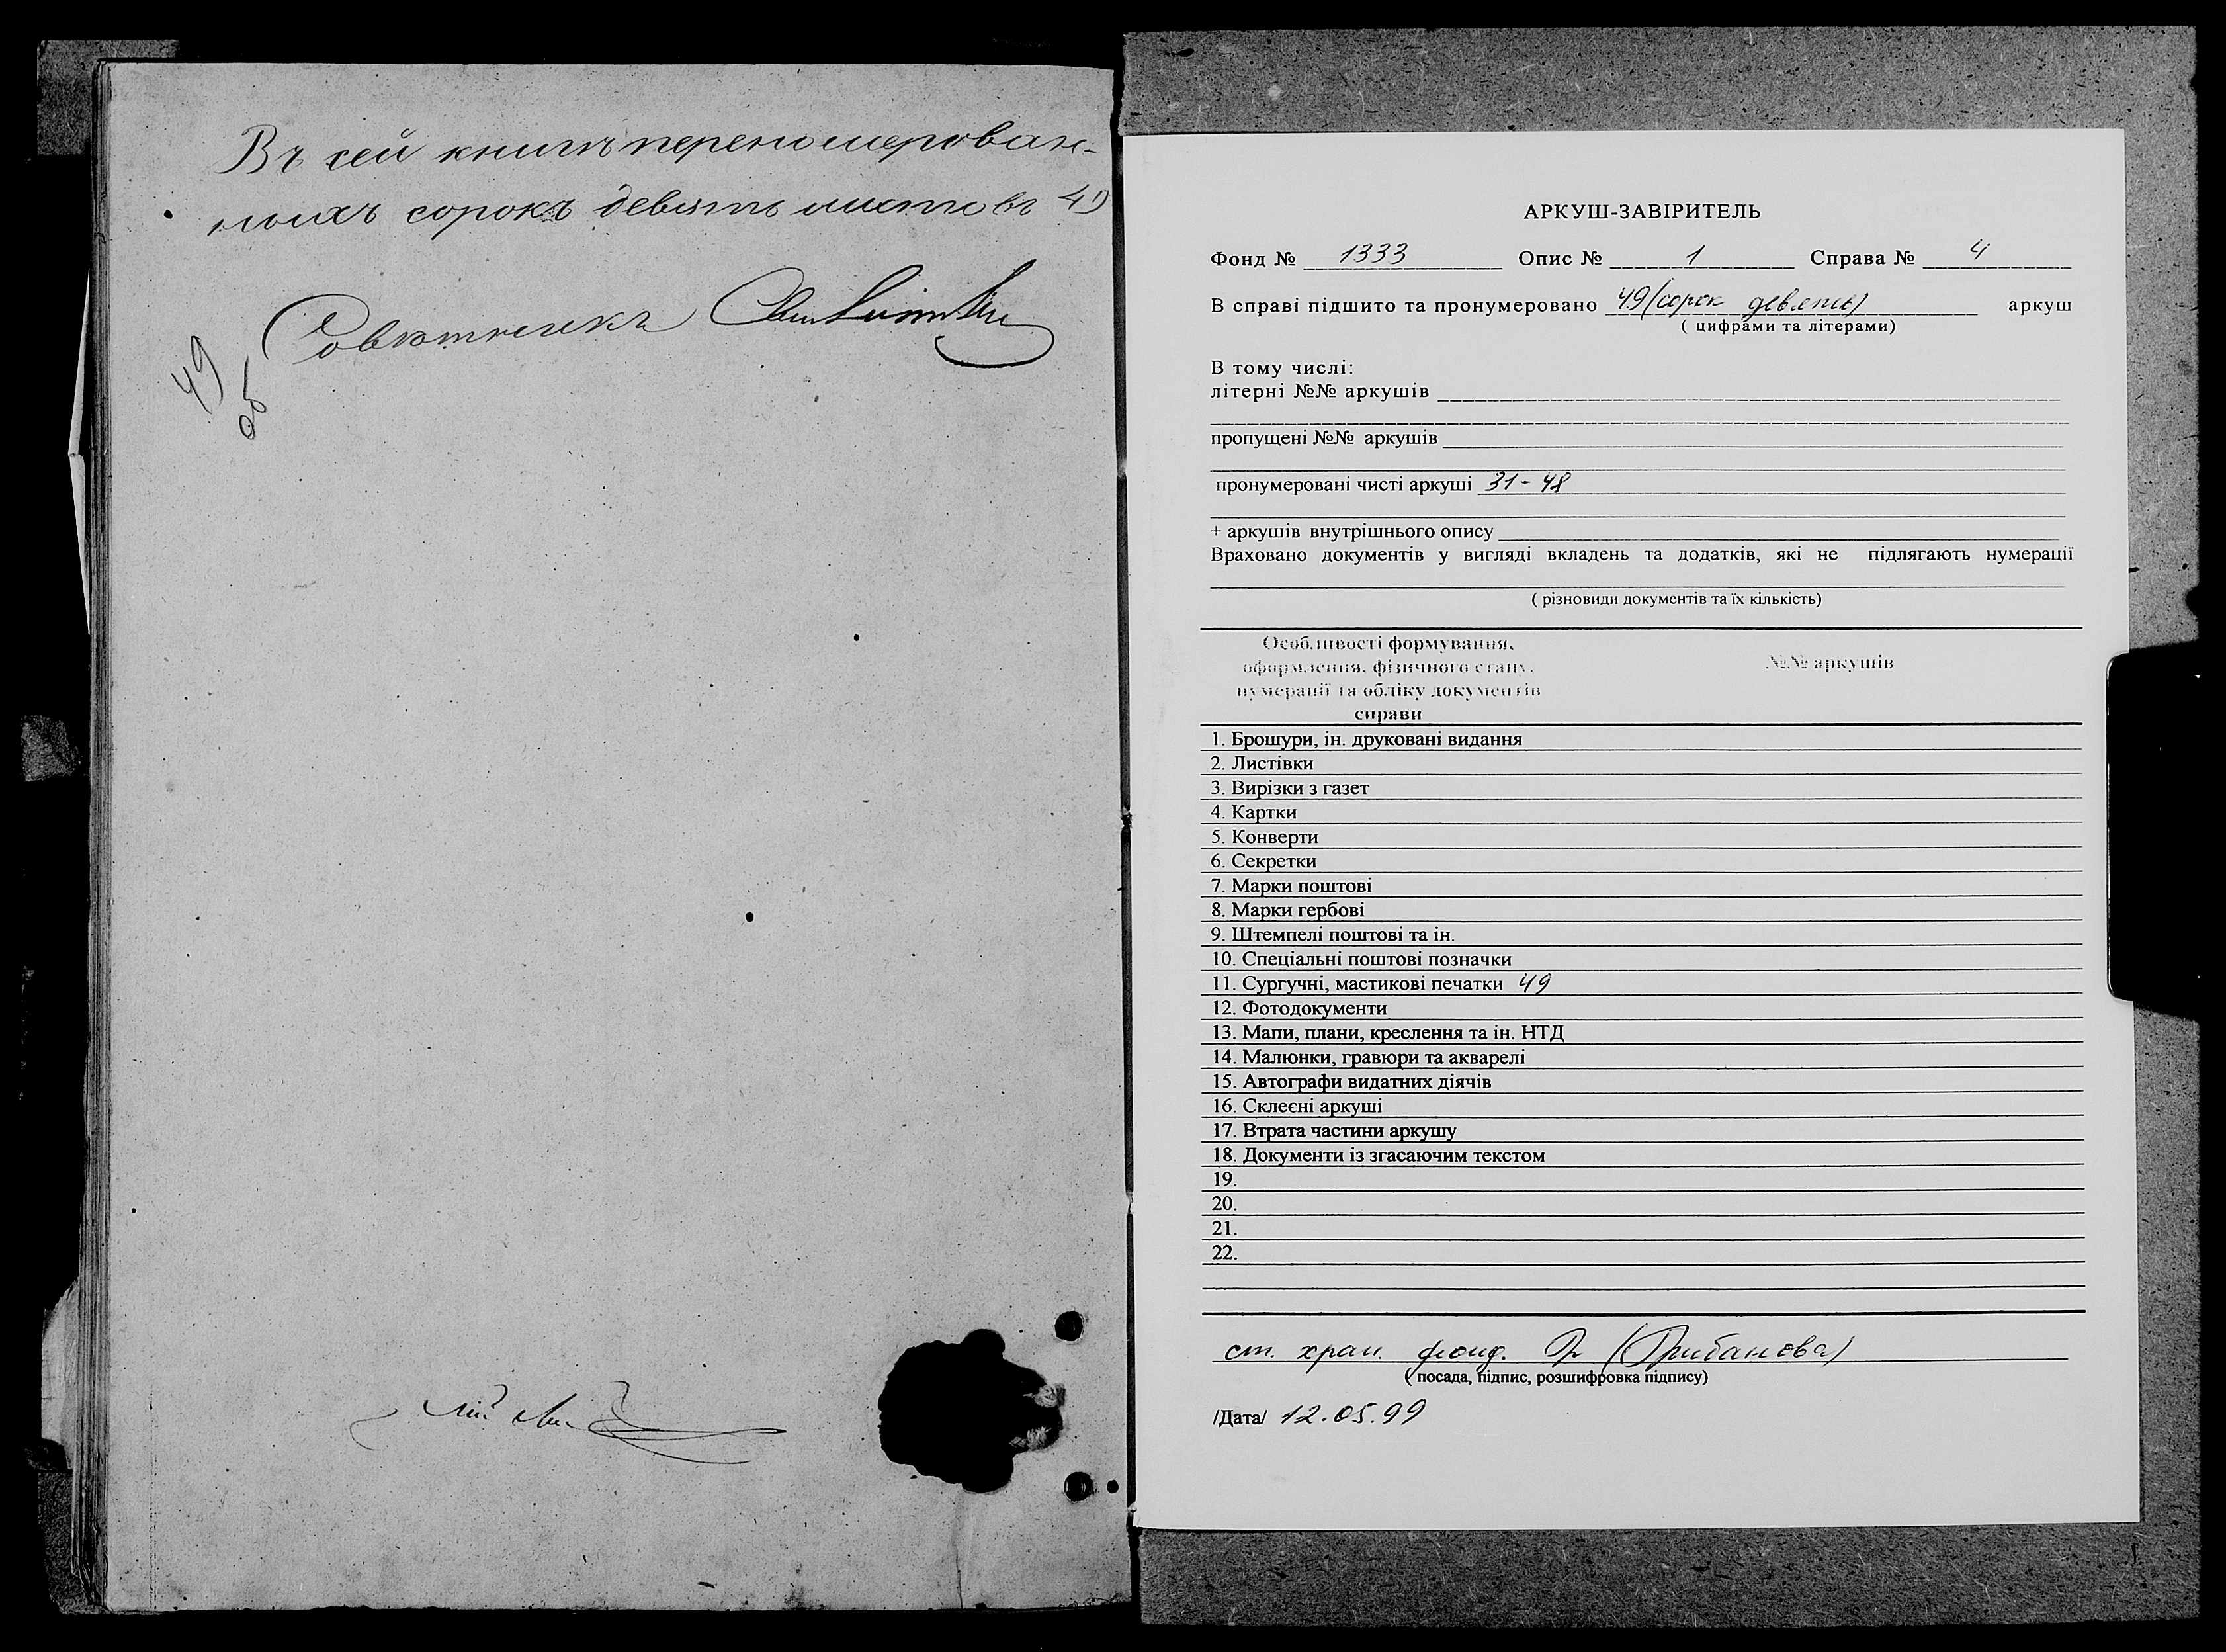 Въ сей книгѣ перенумерован-
ныхъ сорокъ девять листовъ 49
Совѣтникъ
49
об
АРКУШ-ЗАВІРИТЕЛЬ
Фонд № 1333 Опис № 1 Справа № 4
В справі підшито та пронумеровано 49 (сорок девять) аркуш
( цифрами та літерами)
В тому числі:
літерні №№ аркушів
пропущені №№ аркушів
пронумеровані чисті аркуші 31-48
+ аркушів внутрішнього опису
Враховано документів у вигляді вкладень та додатків, які не підлягають нумерації
( різновиди документів та їх кількість)
Особливості формування,
оформлення, фізичного стану,
нумерації та обліку документів
справи
№№ аркушів
1. Брошури, ін. друковані видання
2. Листівки
3. Вирізки з газет
4. Картки
5. Конверти
6. Секретки
7. Марки поштові
8. Марки гербові
9. Штемпелі поштові та ін.
10. Спеціальні поштові позначки
11. Сургучні, мастикові печатки 49
12. Фотодокументи
13. Мапи, плани, креслення та ін. НТД
14. Малюнки, гравюри та акварелі
15. Автографи видатних діячів
16. Склеєні аркуші
17. Втрата частини аркушу
18. Документи із згасаючим текстом
19.
20.
21.
22.
ст. хран. фонд. (Грибанова)
( посада, підпис, розшифровка підпису)
/Дата/ 12.05.99